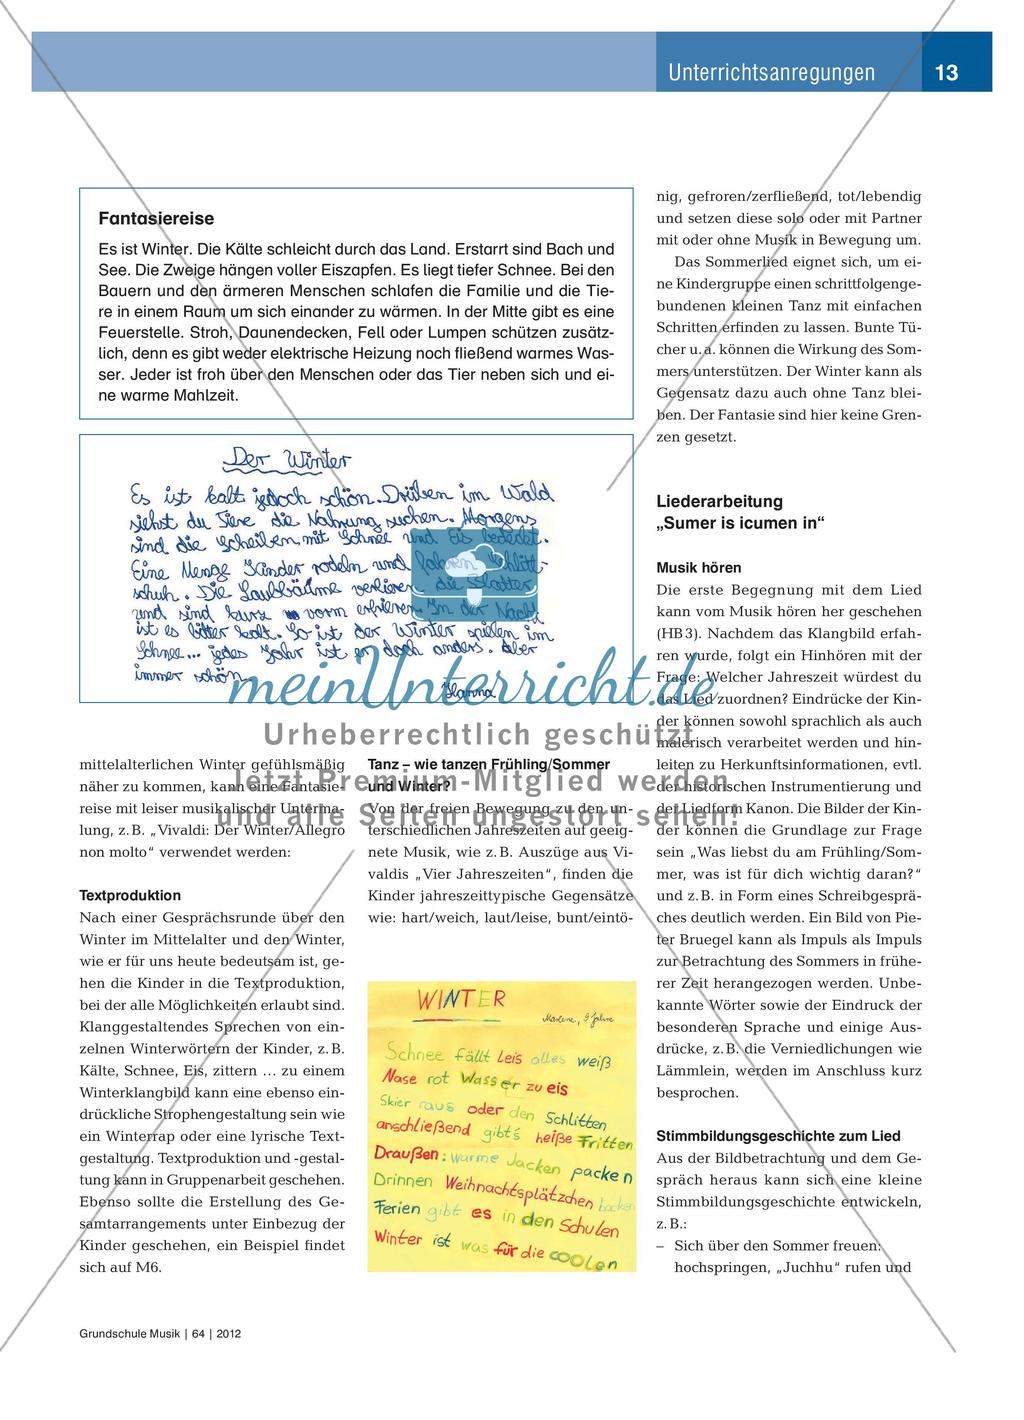 Unterrichtsanregungen 13
Fantasiereise
Es ist Winter. Die Kälte schleicht durch das Land. Erstarrt sind Bach und
See. Die Zweige hängen voller Eiszapfen. Es liegt tiefer Schnee. Bei den
Bauern und den ärmeren Menschen schlafen die Familie und die Tie-
re in einem Raum um sich einander zu wärmen. In der Mitte gibt es eine
Feuerstelle. Stroh, Daunendecken, Fell oder Lumpen schützen zusätz-
lich, denn es gibt weder elektrische Heizung noch fließend warmes Was-
ser. Jeder ist froh über den Menschen oder das Tier neben sich und ei-
ne warme Mahlzeit.
Der Winter
Es ist kalt jedoch schön. Drüben im Wald
siehst du Tiere die Nahrung suchen. Morgens
sind die Scheiben mit Schnee und Eis bedeckt.
Eine Menge Kinder rodeln und fahren Schlitt-
schuh. Die Laubbäume verlieren die Blätter
und sind kurz vorm erfrieren. In der Nacht
ist es bitter kalt. So ist der Winter spielen im
Schnee... jedes Jahr ist er doch anders. Aber
immer schön.
Hanna
mittelalterlichen Winter gefühlsmäßig
näher zu kommen, kann eine Fantasie-
reise mit leiser musikalischer Unterma-
lung, z. B. „Vivaldi: Der Winter/Allegro
non molto“ verwendet werden:
Textproduktion
Nach einer Gesprächsrunde über den
Winter im Mittelalter und den Winter,
wie er für uns heute bedeutsam ist, ge-
hen die Kinder in die Textproduktion,
bei der alle Möglichkeiten erlaubt sind.
Klanggestaltendes Sprechen von ein-
zelnen Winterwörtern der Kinder, z. B.
Kälte, Schnee, Eis, zittern … zu einem
Winterklangbild kann eine ebenso ein-
drückliche Strophengestaltung sein wie
ein Winterrap oder eine lyrische Text-
gestaltung. Textproduktion und -gestal-
tung kann in Gruppenarbeit geschehen.
Ebenso sollte die Erstellung des Ge-
samtarrangements unter Einbezug der
Kinder geschehen, ein Beispiel findet
sich auf M6.
Tanz – wie tanzen Frühling/Sommer
und Winter?
Von der freien Bewegung zu den un-
terschiedlichen Jahreszeiten auf geeig-
nete Musik, wie z. B. Auszüge aus Vi-
valdis „Vier Jahreszeiten“, finden die
Kinder jahreszeittypische Gegensätze
wie: hart/weich, laut/leise, bunt/eintö-
WINTER
Marlene, 9 Jahre
Schnee fällt leis alles weiß
Nase rot Wasser zu eis
Skier raus oder den Schlitten
anschließend gibt's heiße Fritten
Draußen: warme Jacken packen
Drinnen Weihnachtsplätzchen backen
Ferien gibt es in den Schulen
Winter ist was für die coolen
nig, gefroren/zerfließend, tot/lebendig
und setzen diese solo oder mit Partner
mit oder ohne Musik in Bewegung um.
Das Sommerlied eignet sich, um ei-
ne Kindergruppe einen schrittfolgenge-
bundenen kleinen Tanz mit einfachen
Schritten erfinden zu lassen. Bunte Tü-
cher u. a. können die Wirkung des Som-
mers unterstützen. Der Winter kann als
Gegensatz dazu auch ohne Tanz blei-
ben. Der Fantasie sind hier keine Gren-
zen gesetzt.
Liederarbeitung
„Sumer is icumen in“
Musik hören
Die erste Begegnung mit dem Lied
kann vom Musik hören her geschehen
(HB 3). Nachdem das Klangbild erfah-
ren wurde, folgt ein Hinhören mit der
Frage: Welcher Jahreszeit würdest du
das Lied zuordnen? Eindrücke der Kin-
der können sowohl sprachlich als auch
malerisch verarbeitet werden und hin-
leiten zu Herkunftsinformationen, evtl.
der historischen Instrumentierung und
der Liedform Kanon. Die Bilder der Kin-
der können die Grundlage zur Frage
sein „Was liebst du am Frühling/Som-
mer, was ist für dich wichtig daran?“
und z. B. in Form eines Schreibgesprä-
ches deutlich werden. Ein Bild von Pie-
ter Bruegel kann als Impuls als Impuls
zur Betrachtung des Sommers in frühe-
rer Zeit herangezogen werden. Unbe-
kannte Wörter sowie der Eindruck der
besonderen Sprache und einige Aus-
drücke, z. B. die Verniedlichungen wie
Lämmlein, werden im Anschluss kurz
besprochen.
Stimmbildungsgeschichte zum Lied
Aus der Bildbetrachtung und dem Ge-
spräch heraus kann sich eine kleine
Stimmbildungsgeschichte entwickeln,
z. B.:
– Sich über den Sommer freuen:
hochspringen, „Juchhu“ rufen und
meinUnterricht.de
Urheberrechtlich geschützt
Jetzt Premium-Mitglied werden
und alle Seiten ungestört sehen!
Grundschule Musik | 64 | 2012